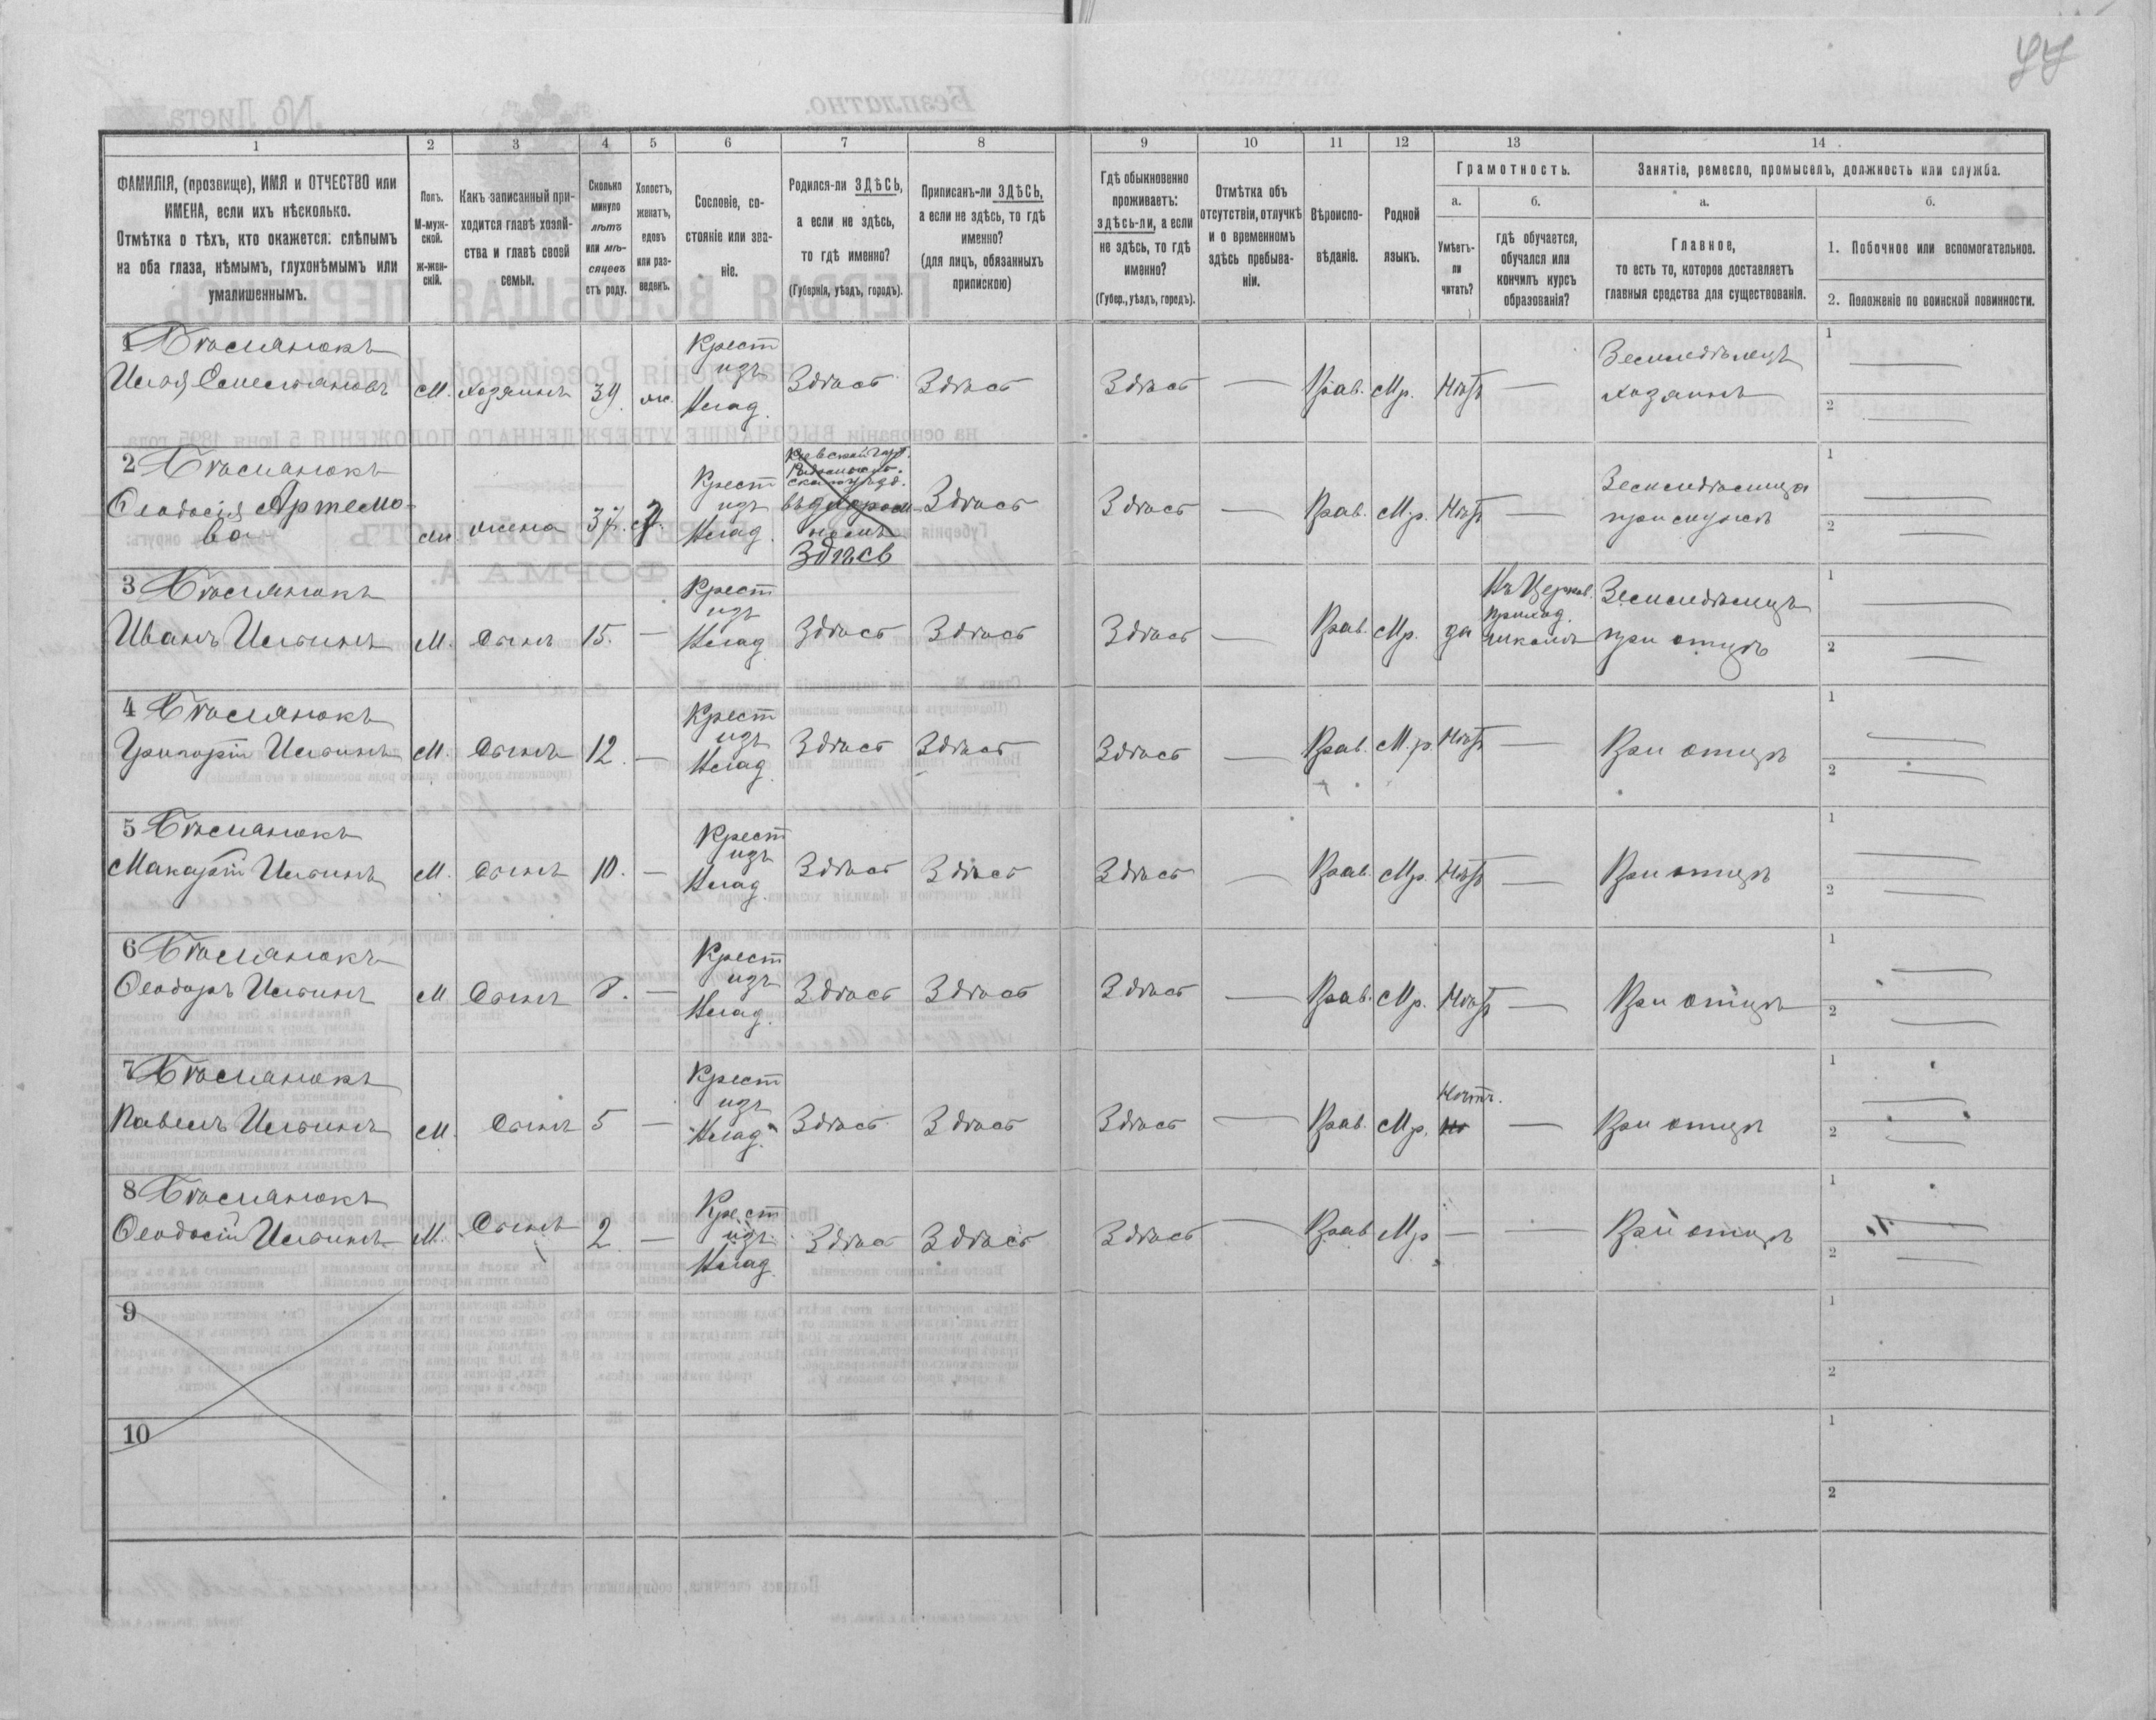 1
2
3
4
5
6
7
8
9
10
11
12
13
14
ФАМИЛІЯ, (прозвище), ИМЯ и ОТЧЕСТВО или
ИМЕНА, если ихъ нѣсколько.
Отмѣтка о тѣхъ, кто окажется: слѣпымъ
на оба глаза, нѣмымъ, глухонѣмымъ или
умалишеннымъ.
Полъ.
М-муж-
ской.
Ж-жен-
скій.
Какъ записанный при-
ходится главѣ хозяй-
ства и главѣ своей
семьи.
Сколько
минуло
лѣтъ
или мѣ-
сяцевъ
отъ роду.
Холостъ,
женатъ,
вдовъ
или раз-
веденъ.
Сословіе, со-
стояніе или зва-
ніе.
Родился-ли ЗДѢСЬ,
а если не здѣсь,
то гдѣ именно?
(Губернія, уѣздъ, городъ).
Приписанъ-ли ЗДѢСЬ,
а если не здѣсь, то гдѣ
именно?
(для лицъ, обязанныхъ
припискою)
Гдѣ обыкновенно
проживаетъ:
здѣсь-ли, а если
не здѣсь, то гдѣ
именно?
(Губер., уѣздъ, городъ).
Отмѣтка объ
отсутствіи, отлучкѣ
и о временномъ
здѣсь пребыва-
ніи.
Вѣроиспо-
вѣданіе.
Родной
языкъ.
Грамотность.
а.
Умѣетъ-
ли
читать?
б.
гдѣ обучается,
обучался или
кончилъ курсъ
образованія?
Занятіе, ремесло, промыселъ, должность или служба.
а.
Главное,
то есть то, которое доставляетъ
главныя средства для существованія.
б.
1. Побочное или вспомогательное.
2. Положеніе по воинской повинности.
1
Илья Емельяновъ М. хозяинъ 39 ж. Крест изъ Влад. Здѣсь Здѣсь Здѣсь — Прав. Мр. Нѣтъ — Земледѣлецъ хозяинъ
1
2
2
Ѳеодосія Артемо-
ва жена 37. Крест изъ Влад. Здѣсь Здѣсь Здѣсь — Прав. Мр. Нѣтъ — Земледѣлица при мужѣ
1
2
3
Иванъ Ильинъ М. Сынъ 15. — Крест изъ Влад. Здѣсь Здѣсь Здѣсь — Прав. Мр. да Въ Церков. приход. школѣ Земледѣлецъ при отцѣ
1
2
4
Григорій Ильинъ М. Сынъ 12. — Крест изъ Влад. Здѣсь Здѣсь Здѣсь — Прав. М.р. Нѣтъ — При отцѣ
1
2
5
Макарій Ильинъ М. Сынъ 10. — Крест изъ Влад. Здѣсь Здѣсь Здѣсь — Прав. Мр. Нѣтъ — При отцѣ
1
2
6
Ѳеодоръ Ильинъ М Сынъ 8. — Крест изъ Влад. Здѣсь Здѣсь Здѣсь — Прав. Мр. Нѣтъ — При отцѣ
1
2
7
Павелъ Ильинъ М. Сынъ 5 — Крест изъ Влад. Здѣсь Здѣсь Здѣсь — Прав. Мр. Нѣтъ. — При отцѣ
1
2
8
Ѳеодосій Ильинъ М. Сынъ 2. — Крест изъ Влад. Здѣсь Здѣсь Здѣсь — Прав Мр — — При отцѣ
1
2
9
1
2
10
1
2